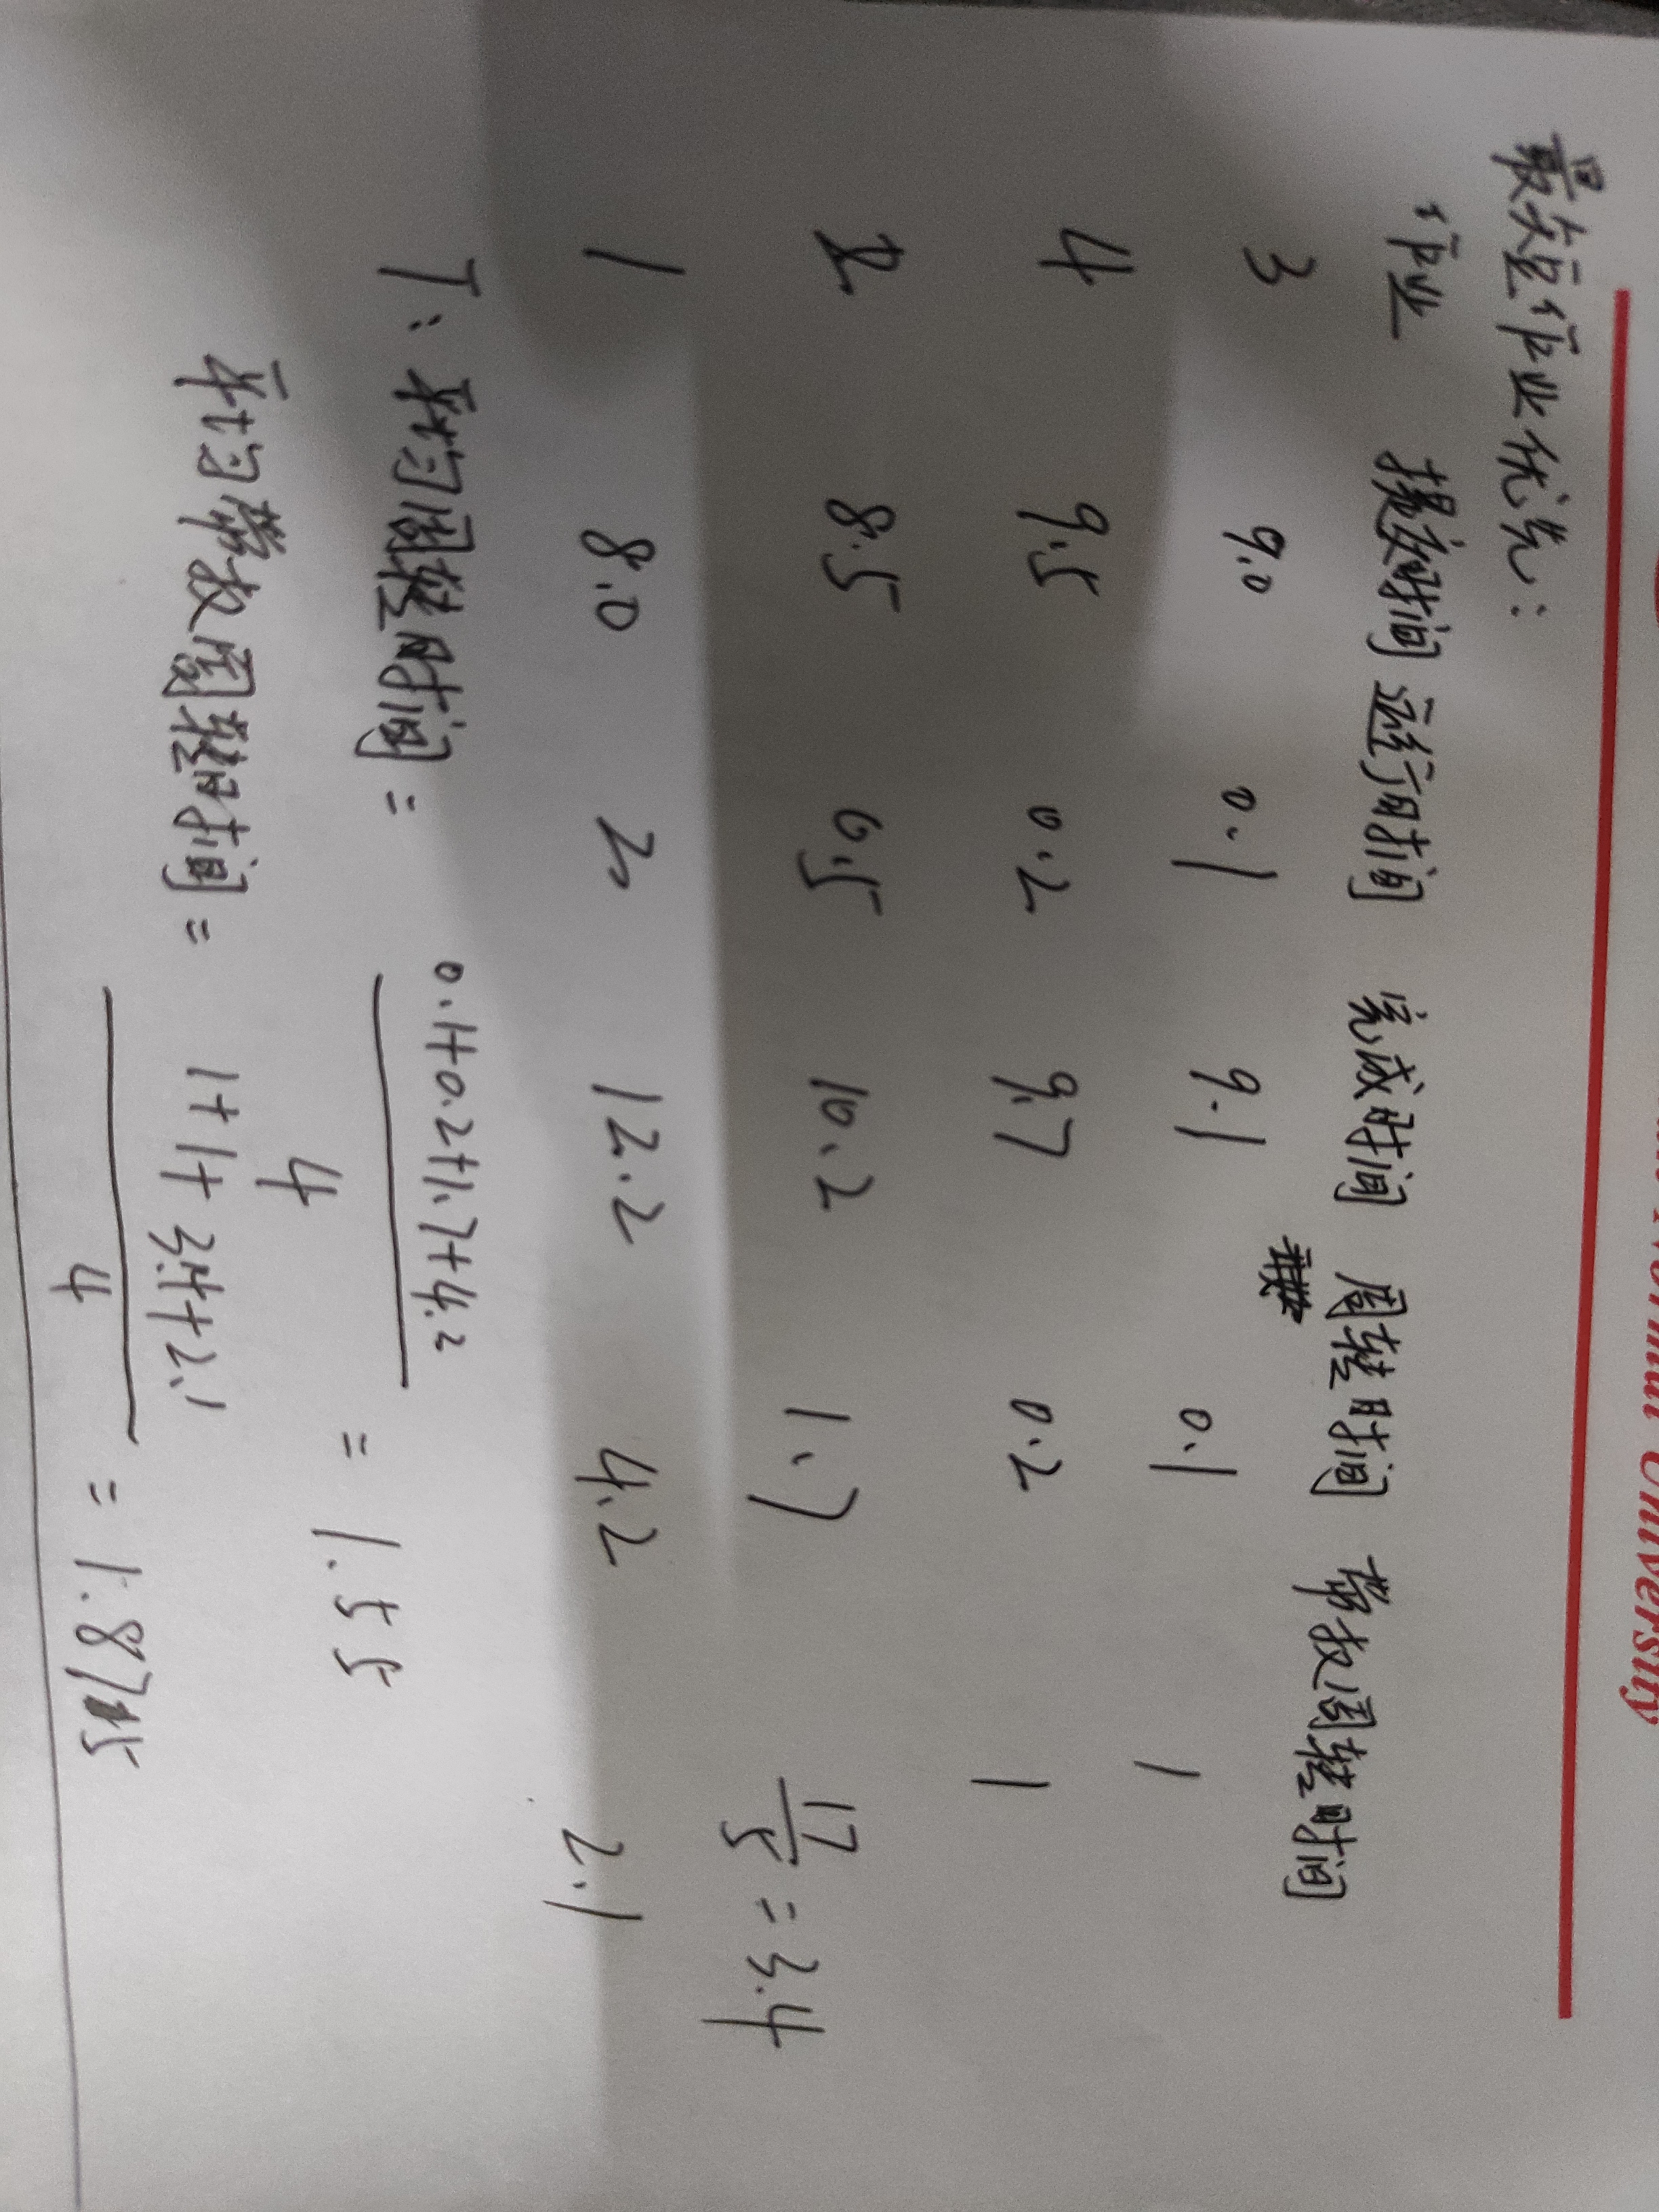 Normal University
最短作业优先：
作业 提交时间 运行时间 完成时间 周转时间 带权周转时间
3 9.0 0.1 9.1 0.1 1
4 9.5 0.2 9.7 0.2 1
2 8.5 0.5 10.2 1.7 17/5 = 3.4
1 8.0 2 12.2 4.2 2.1
T：平均周转时间 = 0.1+0.2+1.7+4.2 / 4 = 1.55
平均带权周转时间 = 1+1+3.4+2.1 / 4 = 1.875